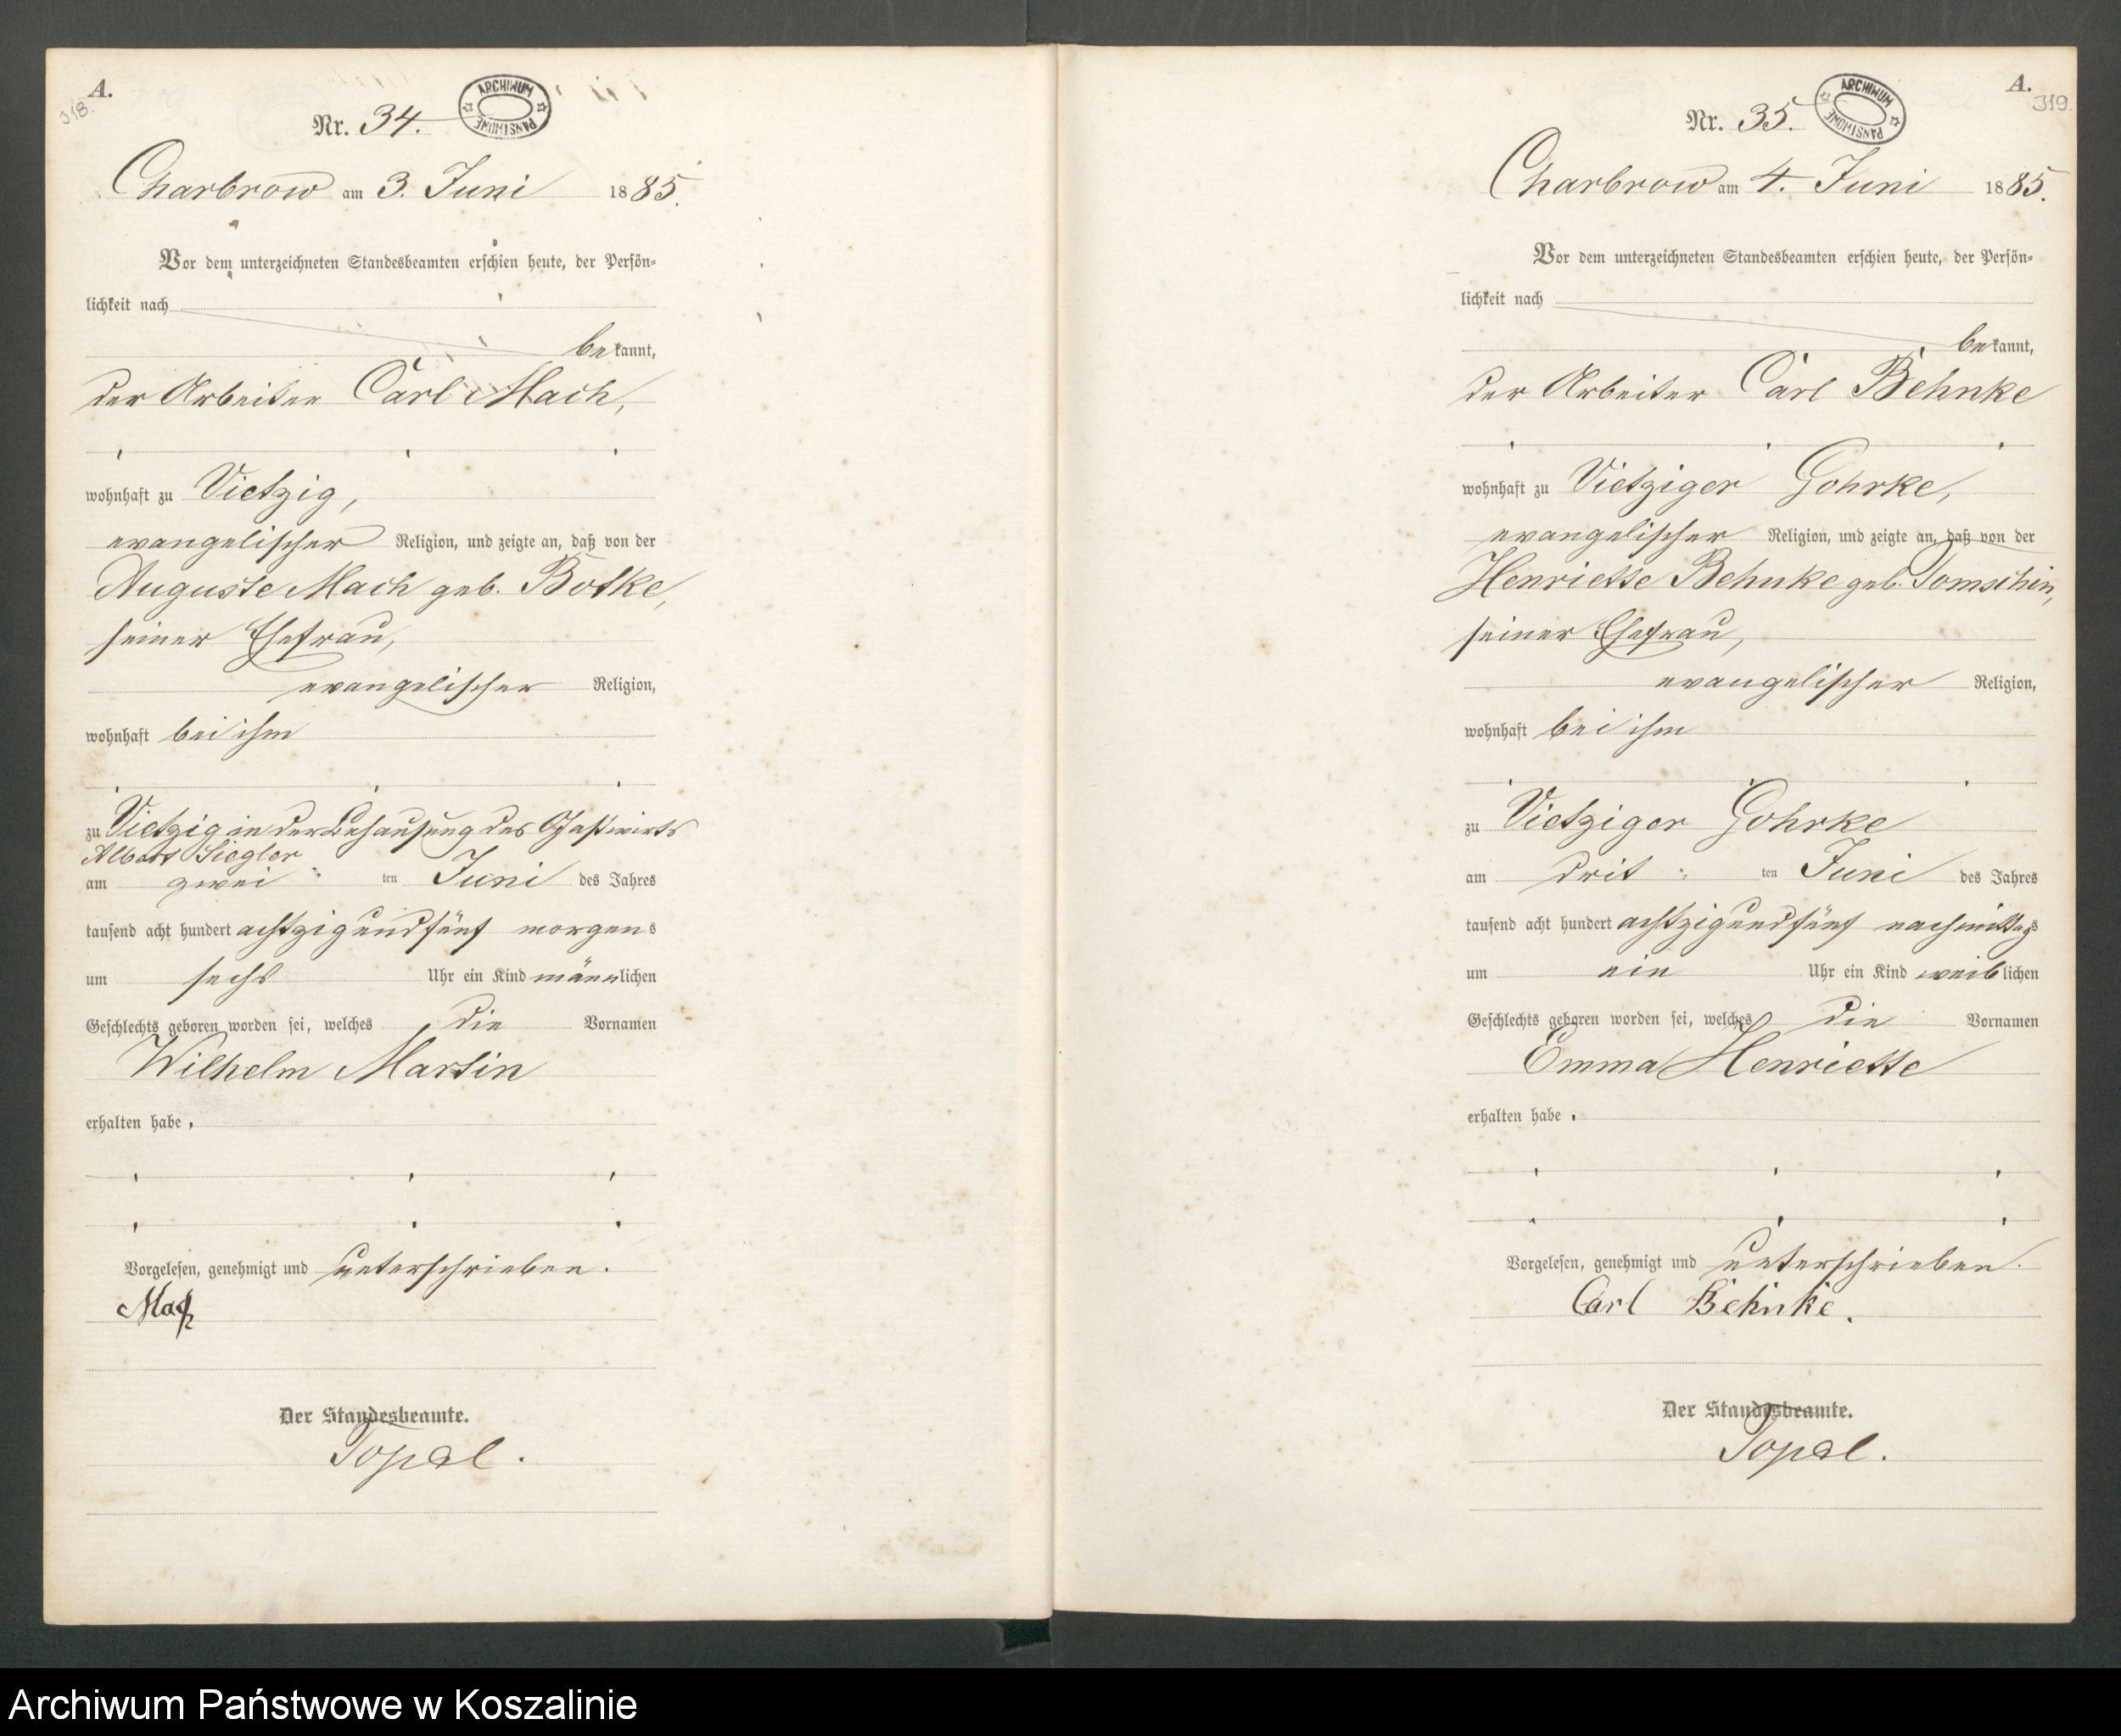 A.
318.
Nr. 34.
ARCHIWUM PAŃSTWOWE
Charbrow am 3. Juni 1885.
Vor dem unterzeichneten Standesbeamten erschien heute, der Persön-
lichkeit nach
bekannt,
der Arbeiter Carl Mach,
wohnhaft zu Vietzig,
evangelischer Religion, und zeigte an, daß von der
Auguste Mach geb. Botke,
seiner Ehefrau,
evangelischer Religion,
wohnhaft bei ihm
zu Vietzig in der Behausung des Gastwirts
Albert Siegler
am zwei ten Juni des Jahres
tausend acht hundert achtzigundfünf morgens
um sechs Uhr ein Kind männlichen
Geschlechts geboren worden sei, welches die Vornamen
Wilhelm Martin
erhalten habe.
Vorgelesen, genehmigt und unterschrieben.
Mach
Der Standesbeamte.
Topal.
A.
319.
Nr. 35.
ARCHIWUM PAŃSTWOWE
Charbrow am 4. Juni 1885.
Vor dem unterzeichneten Standesbeamten erschien heute, der Persön-
lichkeit nach
bekannt,
der Arbeiter Carl Behnke
wohnhaft zu Vietziger Gohrke,
evangelischer Religion, und zeigte an, daß von der
Henriette Behnke geb. Tomschin,
seiner Ehefrau,
evangelischer Religion,
wohnhaft bei ihm
zu Vietziger Gohrke
am drit ten Juni des Jahres
tausend acht hundert achtzigundfünf nachmittags
um ein Uhr ein Kind weiblichen
Geschlechts geboren worden sei, welches die Vornamen
Emma Henriette
erhalten habe.
Vorgelesen, genehmigt und unterschrieben.
Carl Behnke.
Der Standesbeamte.
Topal.
Archiwum Państwowe w Koszalinie